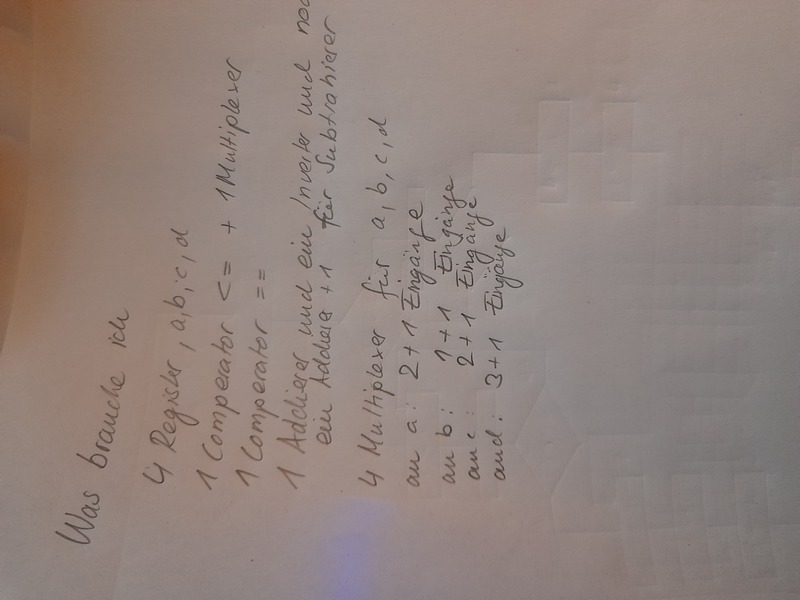 Was brauche ich
4 Register, a,b,c,d
1 Comperator <= + 1 Multiplexer
1 Comperator ==
1 Addierer und ein Inverter und noc
ein Addierer +1 für Subtrahierer
4 Multiplexer für a, b, c, d
an a: 2+1 Eingänge
an b: 1+1 Eingänge
an c: 2+1 Eingänge
an d: 3+1 Eingänge